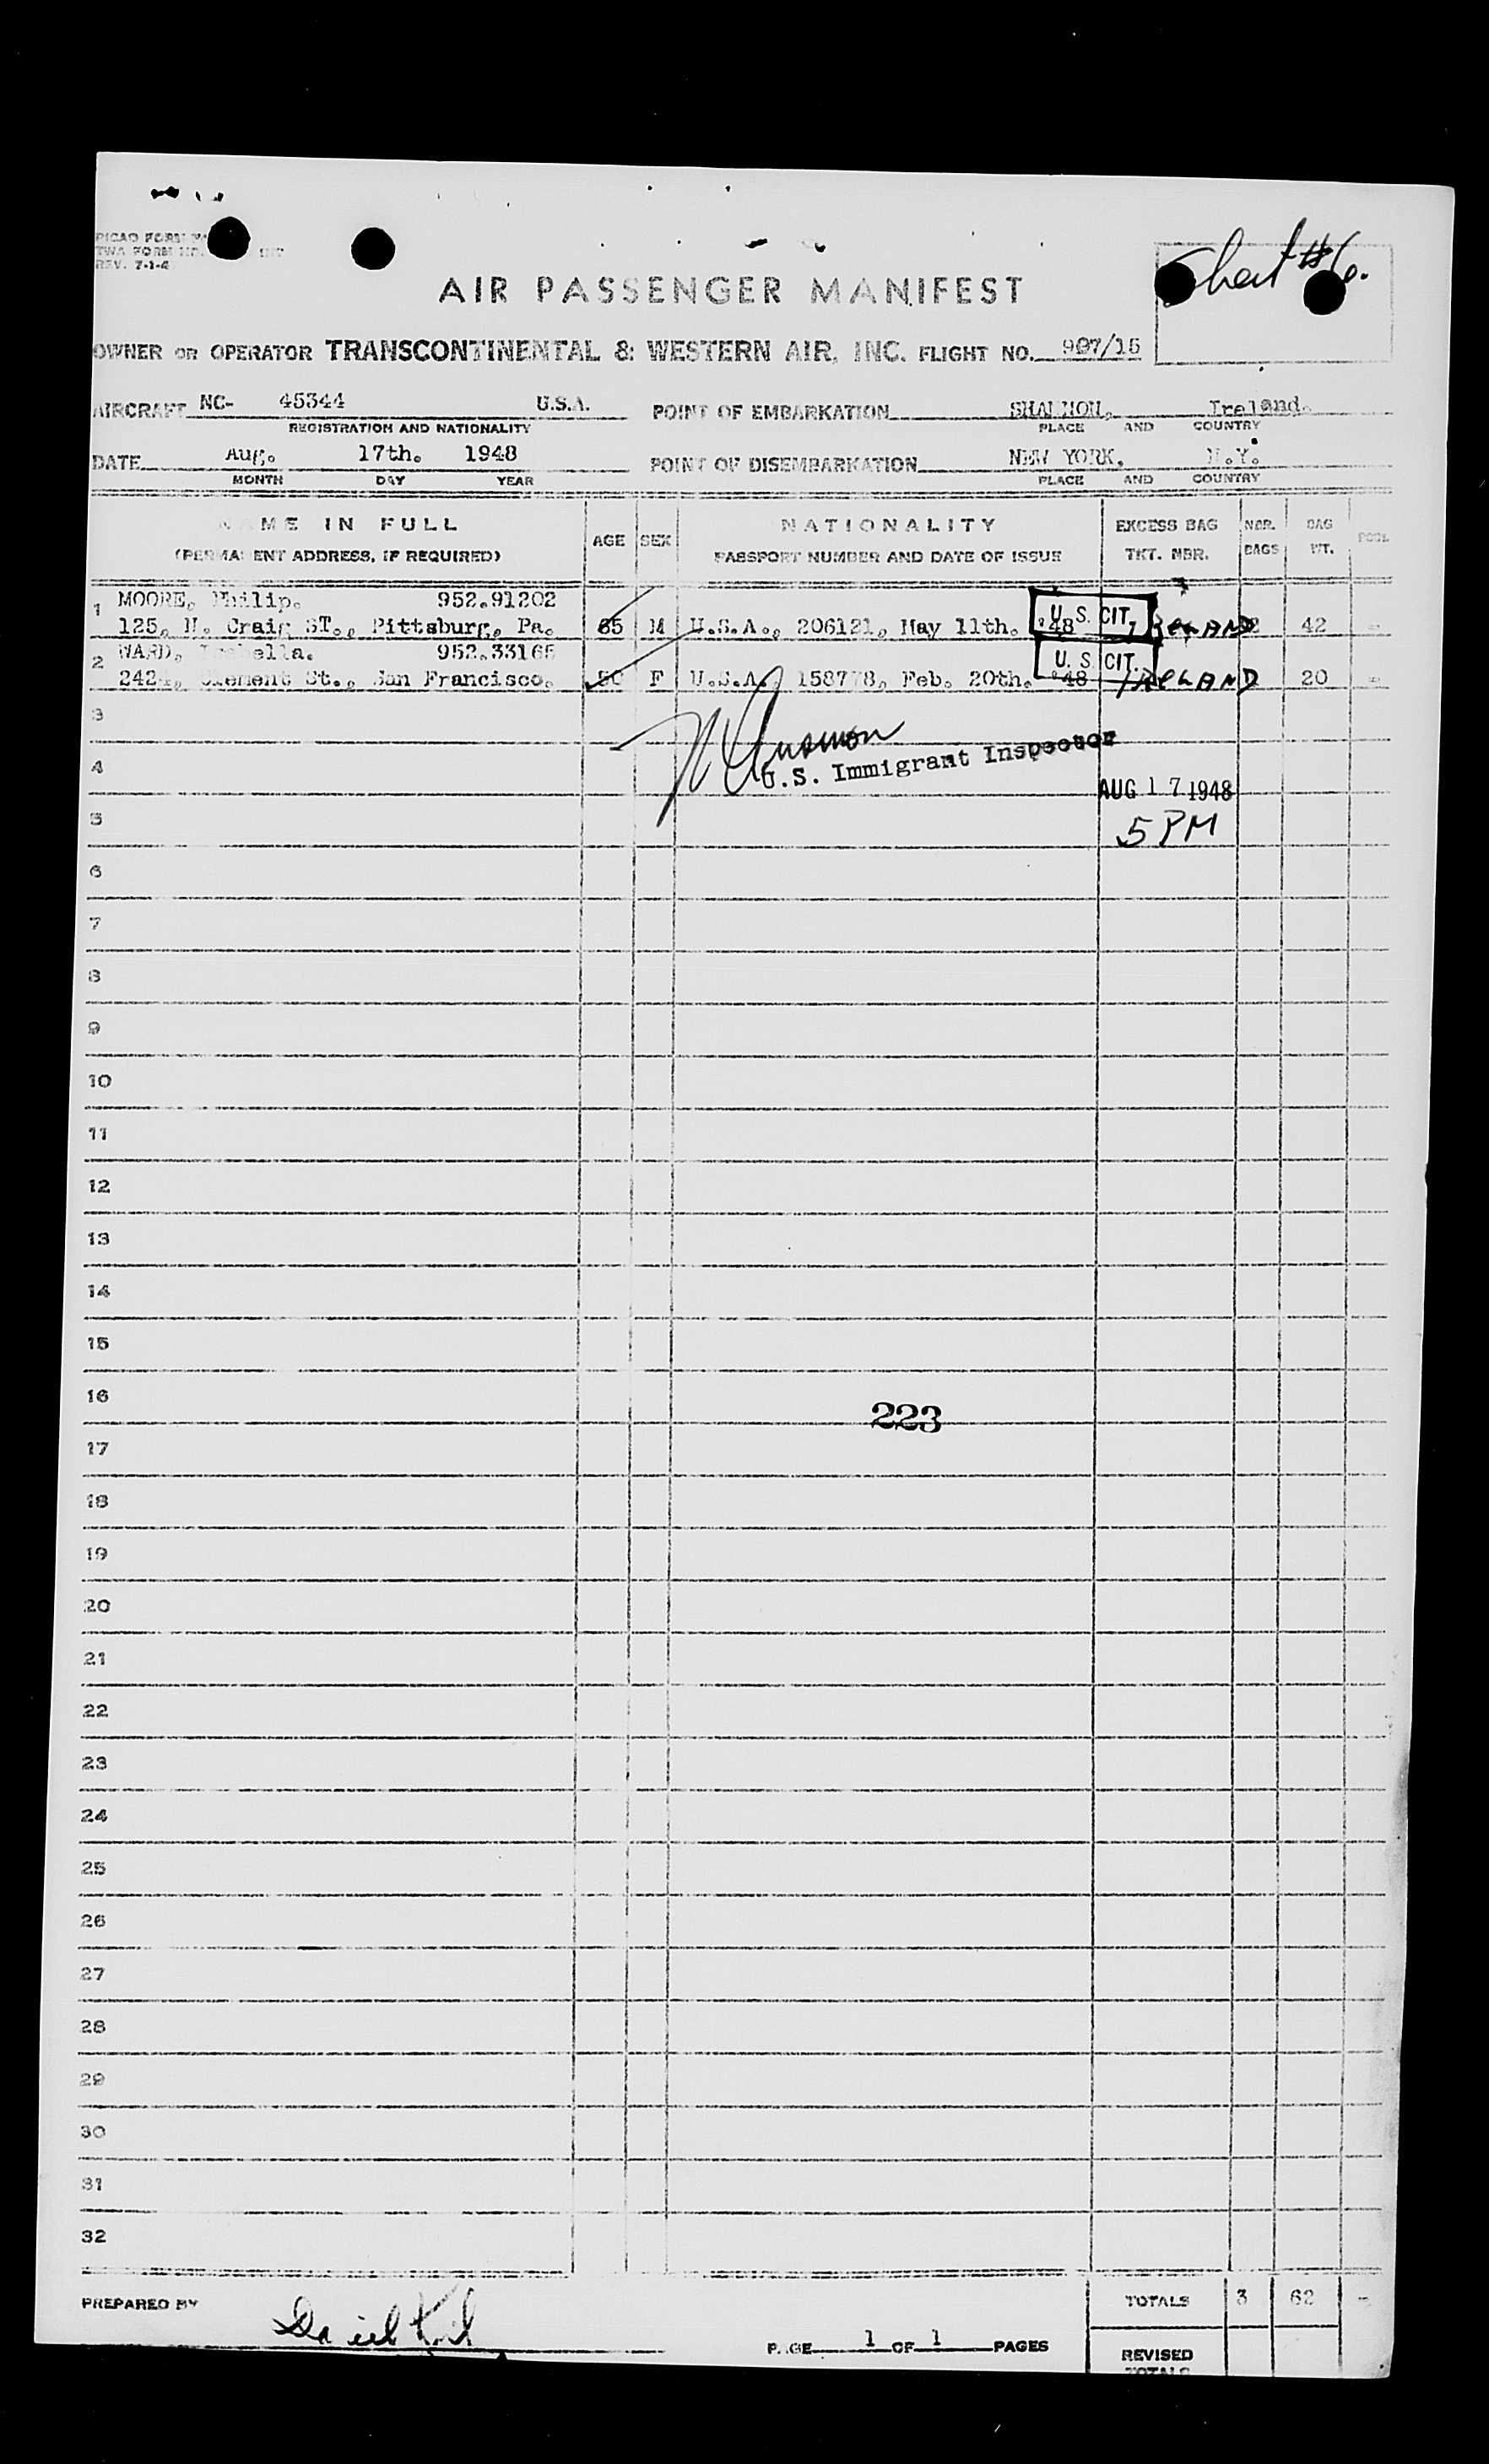 REV. 7-1-4
Sheet #6.
AIR PASSENGER MANIFEST
OWNER OR OPERATOR TRANSCONTINENTAL & WESTERN AIR, INC. FLIGHT NO. 907/15
AIRCRAFT NC- 45344 U.S.A. POINT OF EMBARKATION SHANNON, Ireland.
REGISTRATION AND NATIONALITY PLACE AND COUNTRY
DATE Aug. 17th. 1948 POINT OF DISEMBARKATION NEW YORK, N.Y.
MONTH DAY YEAR PLACE AND COUNTRY
NAME IN FULL AGE SEX NATIONALITY EXCESS BAG NBR. BAG
(PERMANENT ADDRESS, IF REQUIRED) PASSPORT NUMBER AND DATE OF ISSUE TKT. NBR. BAGS WT.
1 MOORE, Philip. 952.91202
125, N. Craig ST., Pittsburg, Pa. 65 M U.S.A., 206121, May 11th. '48 U.S. CIT. IRELAND 2 42 -
2 WARD, Isabella. 952.33165
Clement St., San Francisco. F U.S.A. 158778, Feb. 20th. '48 U.S. CIT. IRELAND 20 -
3
U.S. Immigrant Inspector
4
AUG 17 1948
5
5 PM
6
7
8
9
10
11
12
13
14
15
16
223
17
18
19
20
21
22
23
24
25
26
27
28
29
30
31
32
PREPARED BY TOTALS 3 62 -
PAGE 1 OF 1 PAGES REVISED
TOTALS